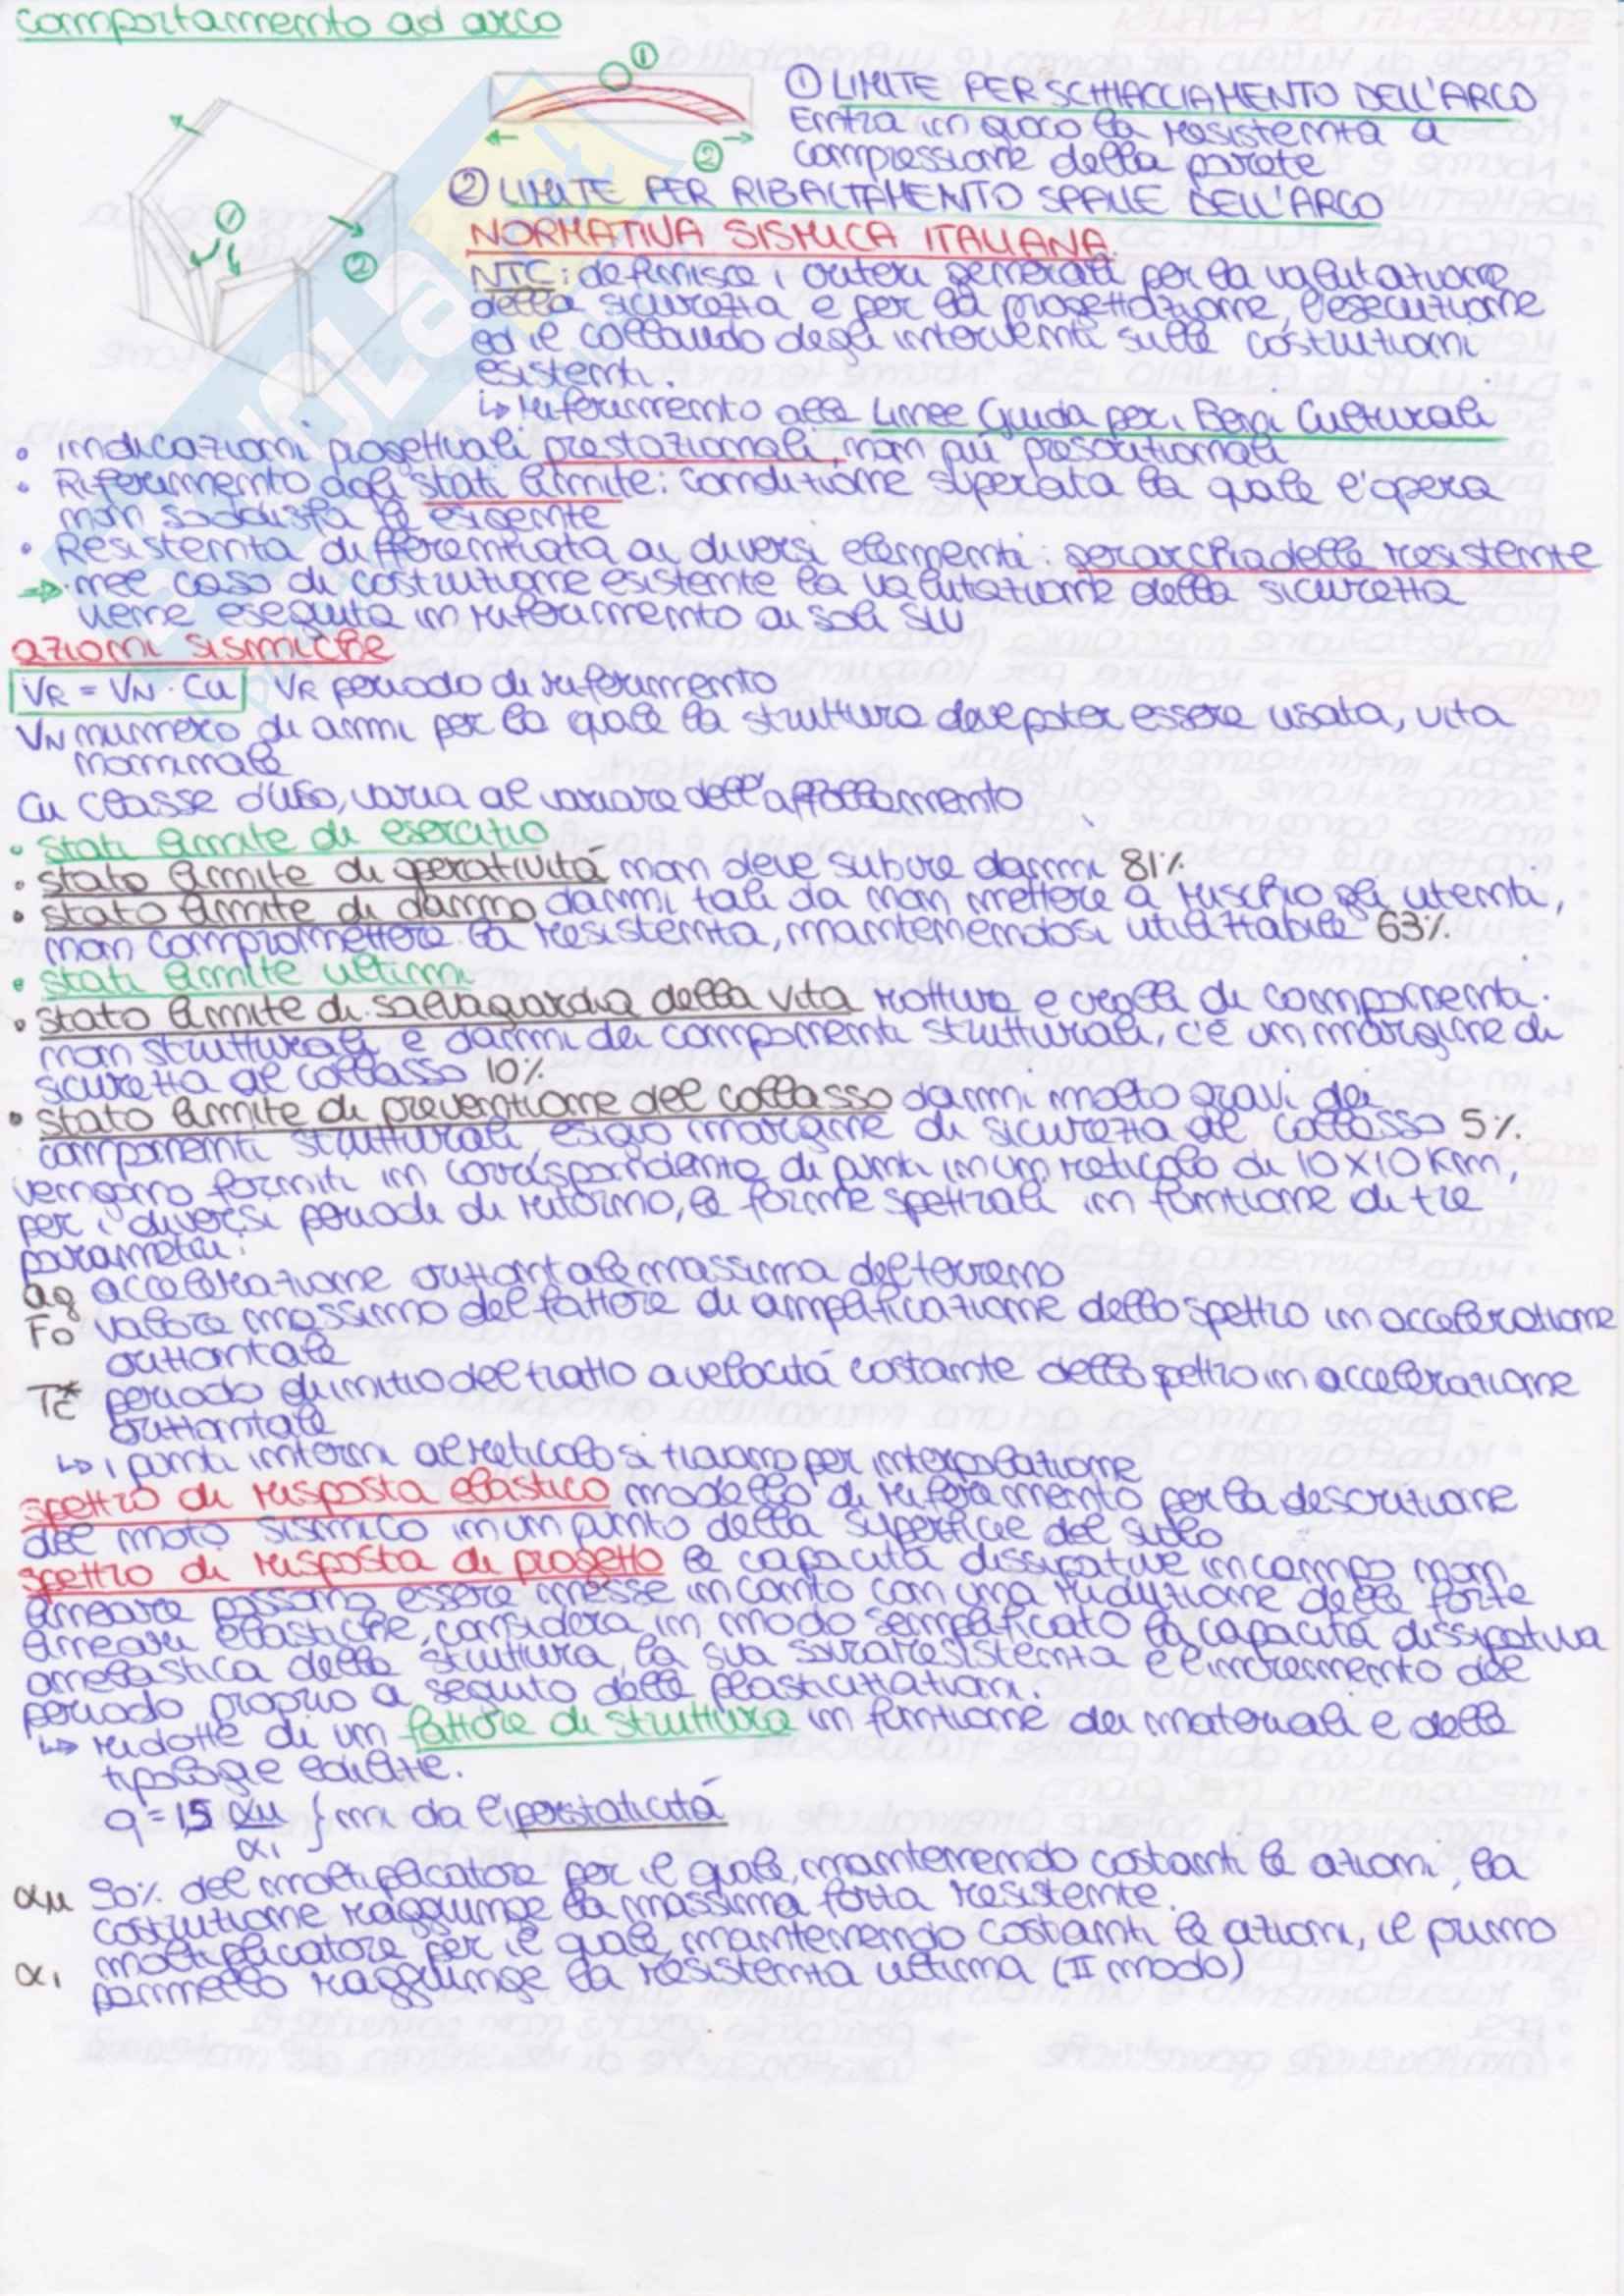 comportamento ad arco
①
②
①
②
① LIMITE PER SCHIACCIAMENTO DELL'ARCO
Entra in gioco la resistenza a
compressione della parete
② LIMITE PER RIBALTAMENTO SPALLE DELL'ARCO
NORMATIVA SISMICA ITALIANA
NTC: definisce i criteri generali per la valutazione
della sicurezza e per la progettazione, l'esecuzione
ed il collaudo degli interventi sulle costruzioni
esistenti.
↳ riferimento alle Linee Guida per i Beni Culturali
• indicazioni progettuali prestazionali, non più prescrizionali
• Riferimento agli stati limite: condizione superata la quale l'opera
non soddisfa le esigenze
• Resistenza differenziata ai diversi elementi: gerarchia delle resistenze
⇒ • nel caso di costruzione esistente la valutazione della sicurezza
viene eseguita in riferimento ai soli SLU
azioni sismiche
VR = VN · Cu VR periodo di riferimento
VN numero di anni per la quale la struttura deve poter essere usata, vita
nominale
Cu classe d'uso, varia al variare dell'affollamento
• stati limite di esercizio
• stato limite di operatività non deve subire danni 81%
• stato limite di danno danni tali da non mettere a rischio gli utenti,
non compromettere la resistenza, mantenendosi utilizzabile 63%.
• stati limite ultimi
• stato limite di salvaguardia della vita rotture e crolli di componenti
non strutturali e danni dei componenti strutturali, c'è un margine di
sicurezza al collasso 10%
• stato limite di prevenzione del collasso danni molto gravi dei
componenti strutturali, esiguo margine di sicurezza al collasso 5%.
vengono forniti in corrispondenza di punti in un reticolo di 10x10 Km,
per i diversi periodi di ritorno, le forme spettrali in funzione di tre
parametri:
ag accelerazione orizzontale massima del terreno
Fo valore massimo del fattore di amplificazione dello spettro in accelerazione
orizzontale
Tc* periodo di inizio del tratto a velocità costante dello spettro in accelerazione
orizzontale
↳ i punti interni al reticolo si trovano per interpolazione
spettro di risposta elastico modello di riferimento per la descrizione
del moto sismico in un punto della superficie del suolo
spettro di risposta di progetto le capacità dissipative in campo non
lineare possono essere messe in conto con una riduzione delle forze
lineari elastiche, considera in modo semplificato la capacità dissipativa
anelastica della struttura, la sua sovraresistenza e l'incremento del
periodo proprio a seguito delle plasticizzazioni.
↳ ridotte di un fattore di struttura in funzione dei materiali e delle
tipologie edilizie.
q = 1,5 αu/α1 } mi da l'iperstaticità
αu 90% del moltiplicatore per il quale, mantenendo costanti le azioni, la
costruzione raggiunge la massima forza resistente.
α1 moltiplicatore per il quale, mantenendo costanti le azioni, il primo
pannello raggiunge la resistenza ultima (II modo)